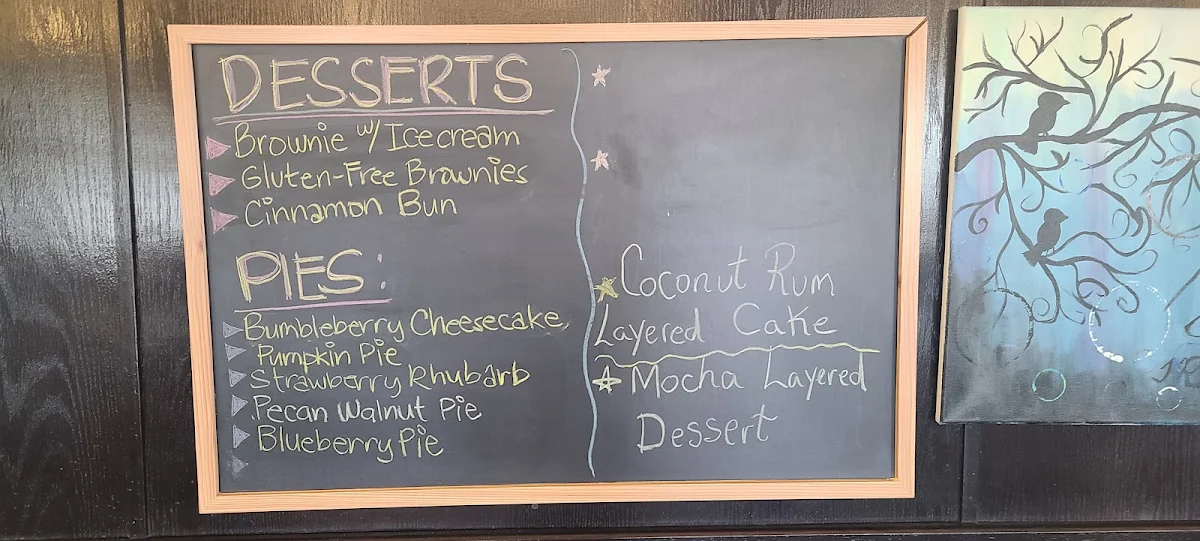 DESSERTS
Brownie w/ Ice cream
Gluten-Free Brownies
Cinnamon Bun
PIES:
Bumbleberry Cheesecake
Pumpkin Pie
Strawberry Rhubarb
Pecan Walnut Pie
Blueberry Pie
Coconut Rum
Layered Cake
Mocha Layered
Dessert